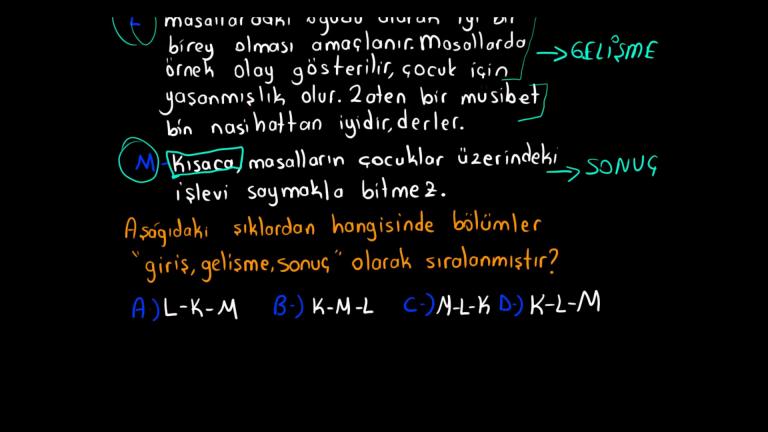 birey olması amaçlanır. Masallarda
örnek olay gösterilir, çocuk için
→ GELİŞME
yaşanmışlık olur. Zaten bir musibet
bin nasihattan iyidir, derler.
M- Kısaca, masalların çocuklar üzerindeki
işlevi saymakla bitmez.
→ SONUÇ
Aşağıdaki şıklardan hangisinde bölümler
"giriş, gelişme, sonuç" olarak sıralanmıştır?
A-) L-K-M B-) K-M-L C-) M-L-K D-) K-L-M